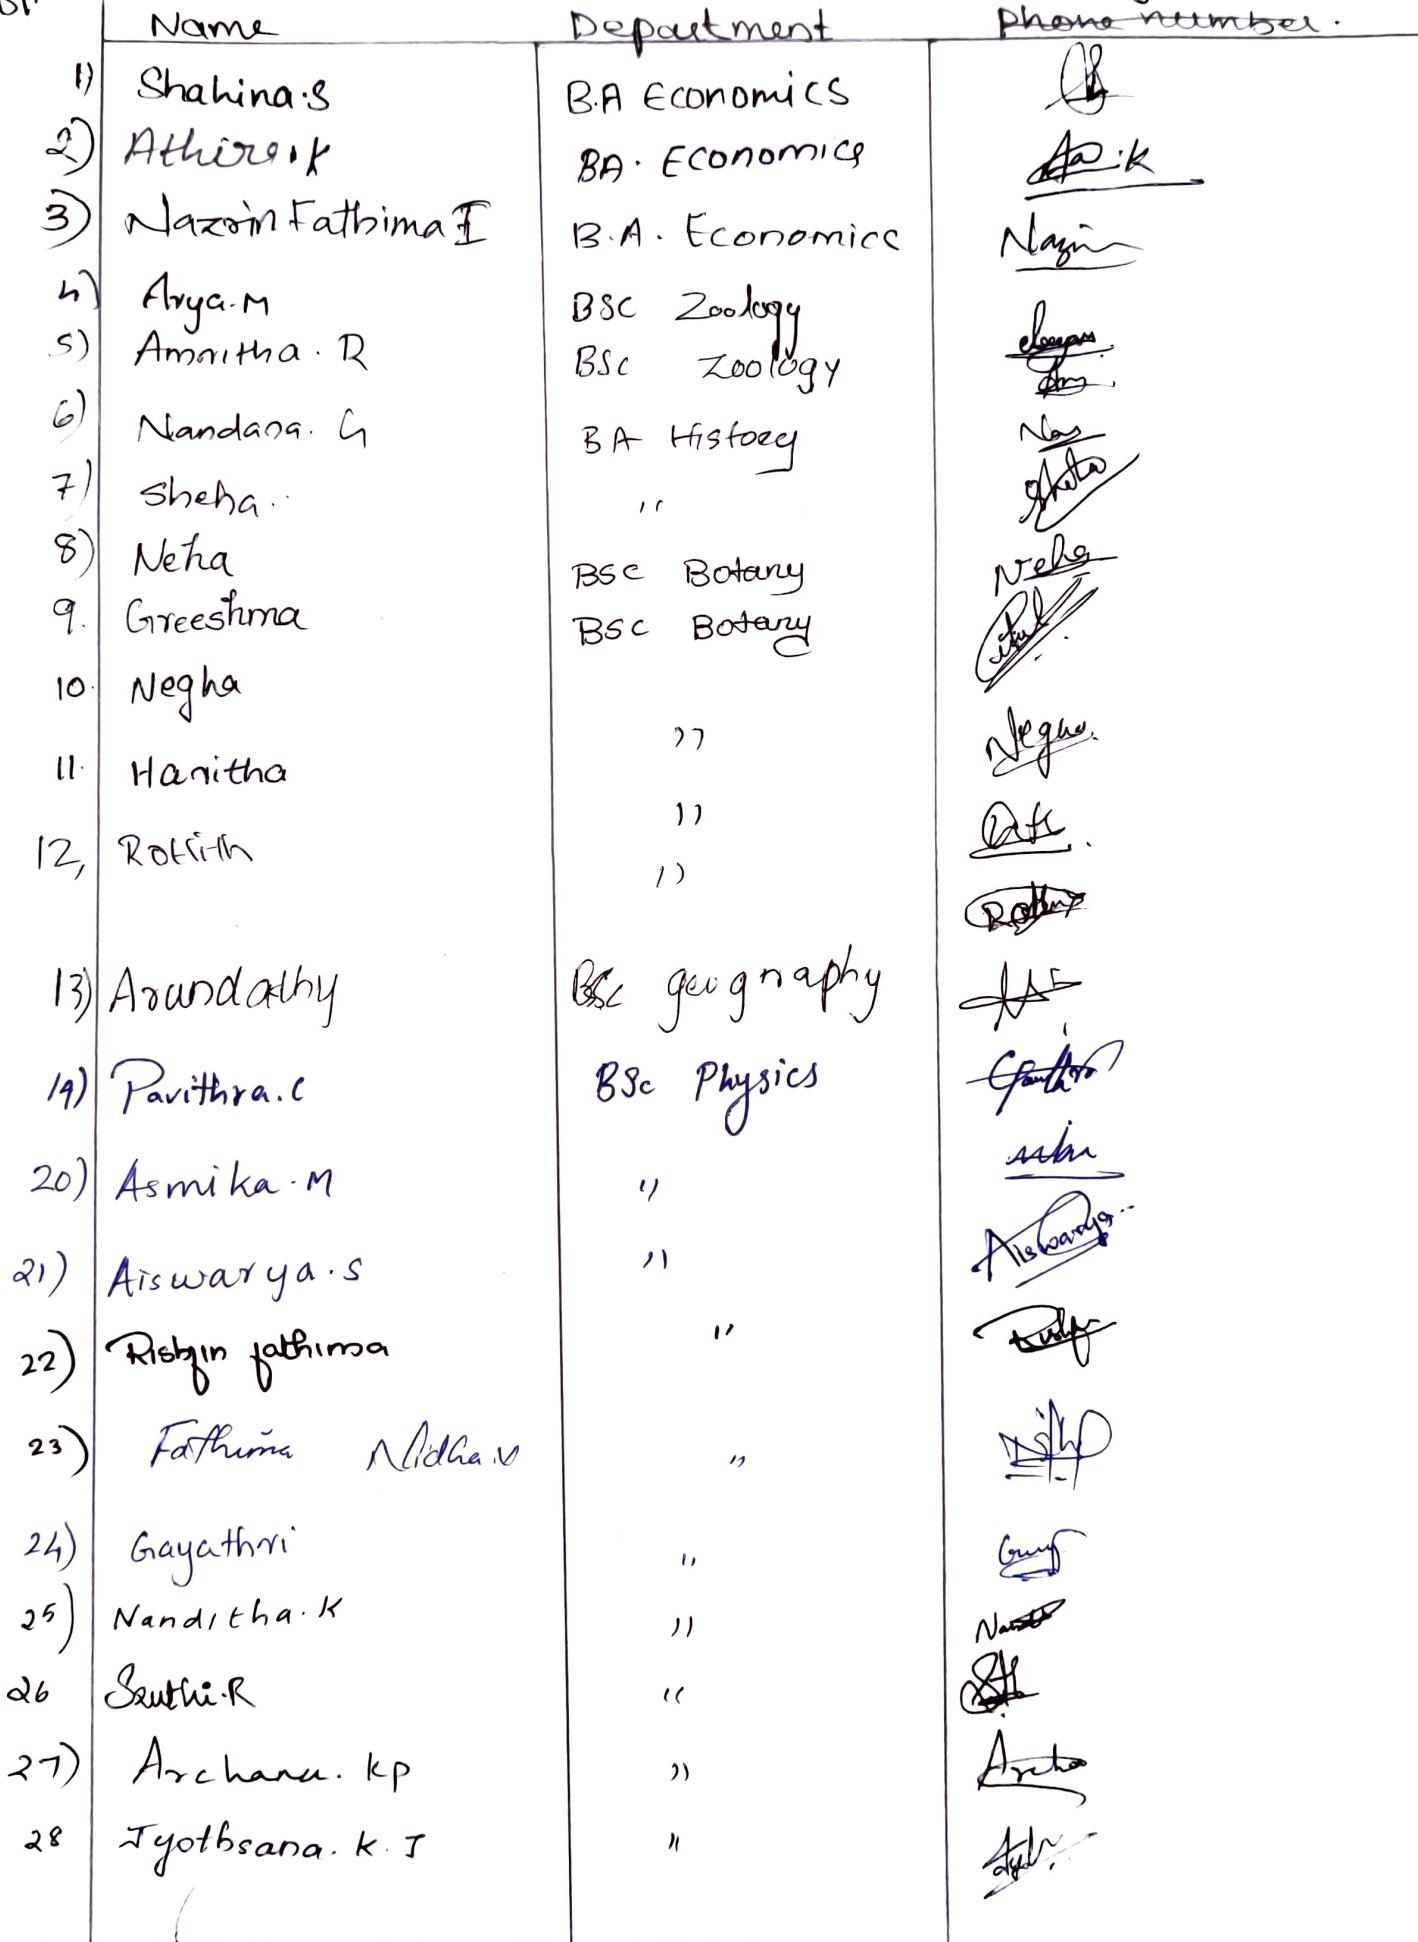 Name Department Phone number.
1) Shahina.S B.A Economics
2) Athira.K BA. Economics A.K
3) Nazrin Fathima I B.A. Economics Nazrin
4) Arya.M BSC Zoology
5) Amritha. R BSc Zoology
6) Nandana. G BA History
7) Sheha.. "
8) Neha BSC Botany Neha
9. Greeshma BSC Botany
10. Negha " Negha.
11. Haritha "
12, Rohith "
13) Arundathy BSc geography
19) Pavithra.C BSc Physics
20) Asmika.M "
21) Aiswarya.S " Aiswarya..
22) Risbin fathima "
23) Fathima Nidha.V "
24) Gayathri "
25) Nanditha.K "
26 Sruthi.R "
27) Archana. KP " Archa
28 Jyothsana. K. J "